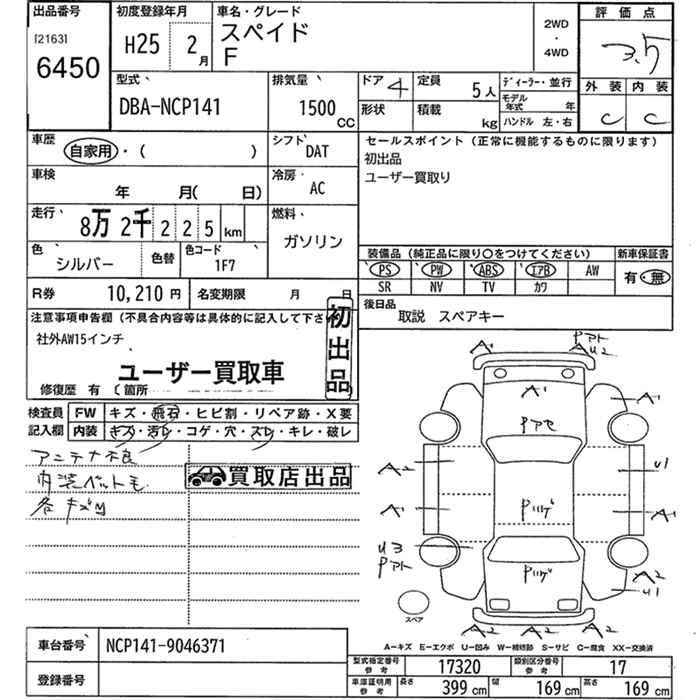 出品番号 初度登録年月 車名・グレード 2WD・4WD 評価点
[2163] H25 2月 スペイド 3.5
6450 F 外装 内装
型式 排気量 ドア 4 定員 5人 ディーラー・並行 C C
DBA-NCP141 1500CC 形状 積載 kg モデル年式 年
ハンドル 左・右
車歴 自家用・( ) シフト DAT セールスポイント(正常に機能するものに限ります)
初出品
車検 年 月(日) 冷房 AC ユーザー買取り
走行 8万2千225km 燃料 ガソリン
色 シルバー 色替 色コード 1F7 装備品(純正品に限り○をつけてください) 新車保証書
PS PW ABS エアB AW 有・無
R券 10,210円 名変期限 月 日 SR NV TV カワ
注意事項申告欄(不具合内容等は具体的に記入して下さい) 後日品 取説 スペアキー
社外AW15インチ 初出品
ユーザー買取車
修復歴 有〔箇所
検査員 FW キズ・飛石・ヒビ割・リペア跡・X要
記入欄 内装 キズ・汚レ・コゲ・穴・スレ・キレ・破レ
アンテナ不良
買取店出品
各キズ凹
A1 Pアト A U2
A1 A1
Pアセ
A2 U1
A1 Pハゲ A1
U3 Pアト
Pハゲ A2 U1
スペア
A2 A2 A2
A—キズ E—エクボ U—凹み W—補修跡 S—サビ C—腐食 XX—交換済
車台番号 NCP141-9046371 型式指定番号 参考 17320 類別区分番号 参考 17
登録番号 車庫証明用 参考 長さ 399cm 幅 169cm 高さ 169cm